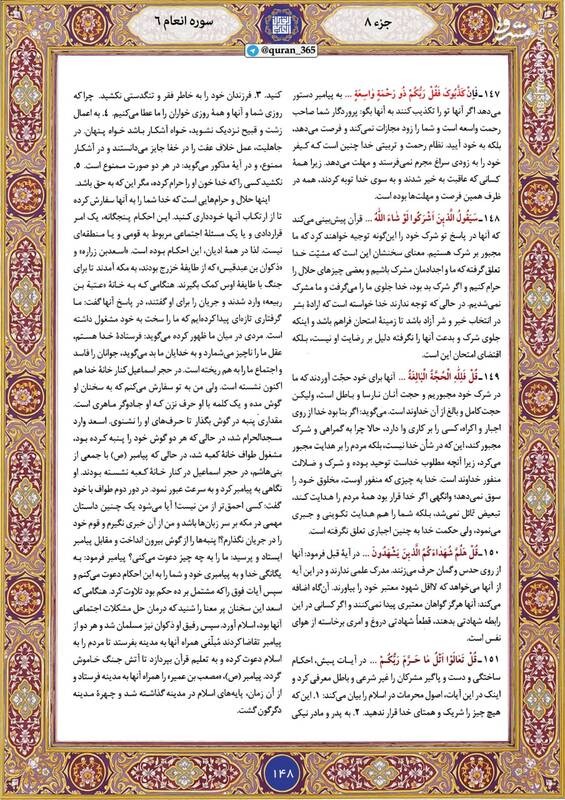 جزء ۸
سوره انعام ۶
@quran_365
مشرق
۱۴۷ـ فَإِنْ كَذَّبُوكَ فَقُلْ رَبُّكُمْ ذُو رَحْمَةٍ وَاسِعَةٍ ... به پیامبر دستور
می‌دهد اگر آنها تو را تکذیب کنند به آنها بگو: پروردگار شما صاحب
رحمت واسعه است و شما را زود مجازات نمی‌کند و فرصت می‌دهد،
بلکه به خود آیید. نظام رحمت و تربیتی خدا چنین است که کیفر
خود را به زودی سراغ مجرم نمی‌فرستد و مهلت می‌دهد. زیرا همهٔ
کسانی که عاقبت به خیر شدند و به سوی خدا توبه کردند، همه در
ظرف همین فرصت و مهلت‌ها بوده است.
۱۴۸ـ سَيَقُولُ الَّذِينَ أَشْرَكُوا لَوْ شَاءَ اللَّهُ ... قرآن پیش‌بینی می‌کند
که آنها در پاسخ تو شرک خود را این‌گونه توجیه خواهند کرد که ما
مجبور بر شرک هستیم. معنای سخنشان این است که مشیّت خدا
تعلق گرفته که ما و اجدادمان مشرک باشیم و بعضی چیزهای حلال را
حرام کنیم و اگر شرک بد بود، خدا جلوی ما را می‌گرفت و ما مشرک
نمی‌شدیم. در حالی که توجه ندارند خدا خواسته است که ارادهٔ بشر
در انتخاب خیر و شر آزاد باشد تا زمینهٔ امتحان فراهم باشد و اینکه
جلوی شرک و بدعت آنها را نگرفته دلیل بر رضایت او نیست، بلکه
اقتضای امتحان این است.
۱۴۹ـ قُلْ فَلِلَّهِ الْحُجَّةُ الْبَالِغَةُ ... آنها برای خود حجّت آوردند که ما
در شرک خود مجبوریم و حجت آنان نارسا و باطل است، ولیکن
حجت کامل و بالغ از آن خداوند است. می‌گوید: اگر بنا بود خدا از روی
اجبار و اکراه، کسی را بر کاری وا دارد، حالا چرا به گمراهی و شرک
مجبور کند، این که در شأن خدا نیست، بلکه مردم را بر هدایت مجبور
می‌کرد، زیرا آنچه مطلوب خداست توحید بوده و شرک و ضلالت
منفور خداوند است. خدا به چیزی که منفور اوست، مخلوق خود را
سوق نمی‌دهد؛ وانگهی اگر خدا قرار بود همهٔ مردم را هدایت کند،
تبعیض قائل نمی‌شد، بلکه شما را هم هدایت تکوینی و جبری
می‌نمود، ولی حکمت خدا به چنین اجباری تعلق نگرفته است.
۱۵۰ـ قُلْ هَلُمَّ شُهَدَاءَكُمُ الَّذِينَ يَشْهَدُونَ ... در آیهٔ قبل فرمود: آنها
از روی حدس و گمان حرف می‌زنند. مدرک علمی ندارند و در این آیه
از آنها می‌خواهد که لااقل شهود معتبر خود را بیاورند. آن‌گاه اضافه
می‌کند: آنها هرگز گواهان معتبری پیدا نمی‌کنند و اگر کسانی در این
رابطه شهادتی بدهند، قطعاً شهادتی دروغ و امری برخاسته از هوای
نفس است.
۱۵۱ـ قُلْ تَعَالَوْا أَتْلُ مَا حَرَّمَ رَبُّكُمْ ... در آیات پیش، احکام
ساختگی و دست و پاگیر مشرکان را غیر شرعی و باطل معرفی کرد و
اینک در این آیات، اصول محرمات در اسلام را بیان می‌کند: ۱. این که
هیچ چیز را شریک و همتای خدا قرار ندهید. ۲. به پدر و مادر نیکی
کنید. ۳. فرزندان خود را به خاطر فقر و تنگدستی نکشید. چرا که
روزی شما و آنها و همهٔ روزی خواران را ما عطا می‌کنیم. ۴. به اعمال
زشت و قبیح نزدیک نشوید، خواه آشکار باشد خواه پنهان. در
جاهلیت، عمل خلاف عفت را در خفا جایز می‌دانستند و در آشکار
ممنوع، و در آیهٔ مذکور می‌گوید: در هر دو صورت ممنوع است. ۵.
نکشید کسی را که خدا خون او را حرام کرده، مگر این که به حق باشد.
اینها حلال و حرام‌هایی است که خدا شما را به آنها سفارش کرده
تا از ارتکاب آنها خودداری کنید. این احکام پنجگانه، یک امر
قراردادی و یا یک مسئلهٔ اجتماعی مربوط به قومی و یا منطقه‌ای
نیست. لذا در همهٔ ادیان، این احکام بوده است. «اسعدبن زراره» و
«ذکوان بن عبدقیس» که از طایفهٔ خزرج بودند، به مکه آمدند تا برای
جنگ با طایفهٔ اوس کمک بگیرند. هنگامی که به خانهٔ «عتبة بن
ربیعه» وارد شدند و جریان را برای او گفتند، در پاسخ آنها گفت: ما
گرفتاری تازه‌ای پیدا کرده‌ایم که ما را سخت به خود مشغول داشته
است. مردی در میان ما ظهور کرده می‌گوید: فرستادهٔ خدا هستم،
عقل ما را ناچیز می‌شمارد و به خدایان ما بد می‌گوید، جوانان را فاسد
و اجتماع ما را به هم ریخته است. در حجر اسماعیل کنار خانهٔ خدا هم
اکنون نشسته است. ولی من به تو سفارش می‌کنم که به سخنان او
گوش مده و یک کلمه با او حرف نزن که او جادوگر ماهری است.
مقداری پنبه در گوش بگذار تا حرف‌های او را نشنوی. اسعد وارد
مسجدالحرام شد، در حالی که هر دو گوش خود را پنبه کرده بود،
مشغول طواف خانهٔ کعبه شد، در حالی که پیامبر (ص) با جمعی از
بنی‌هاشم، در حجر اسماعیل در کنار خانهٔ کعبه نشسته بودند. او
نگاهی به پیامبر کرد و به سرعت عبور نمود. در دور دوم طواف با خود
گفت: کسی احمق‌تر از من نیست! آیا می‌شود یک چنین داستان
مهمی در مکه بر سر زبان‌ها باشد و من از آن خبری نگیرم و قوم خود
را در جریان نگذارم؟! پنبه‌ها را از گوش بیرون انداخت و مقابل پیامبر
ایستاد و پرسید: ما را به چه چیز دعوت می‌کنی؟ پیامبر فرمود: به
یگانگی خدا و به پیامبری خود و شما را به این احکام دعوت می‌کنم و
سپس آیات فوق را که مشتمل بر ده حکم بود تلاوت کرد. هنگامی که
اسعد این سخنان پر معنا را شنید که درمان حل مشکلات اجتماعی
آنها بود، اسلام آورد. سپس رفیق او ذکوان نیز مسلمان شد و هر دو از
پیامبر تقاضا کردند مُبلّغی همراه آنها به مدینه بفرستد تا مردم را به
اسلام دعوت کرده و به تعلیم قرآن بپردازد تا آتش جنگ خاموش
گردد. پیامبر (ص)، «مصعب بن عمیر» را همراه آنها به مدینه فرستاد و
از آن زمان، پایه‌های اسلام در مدینه گذاشته شد و چهرهٔ مدینه
دگرگون گشت.
۱۴۸